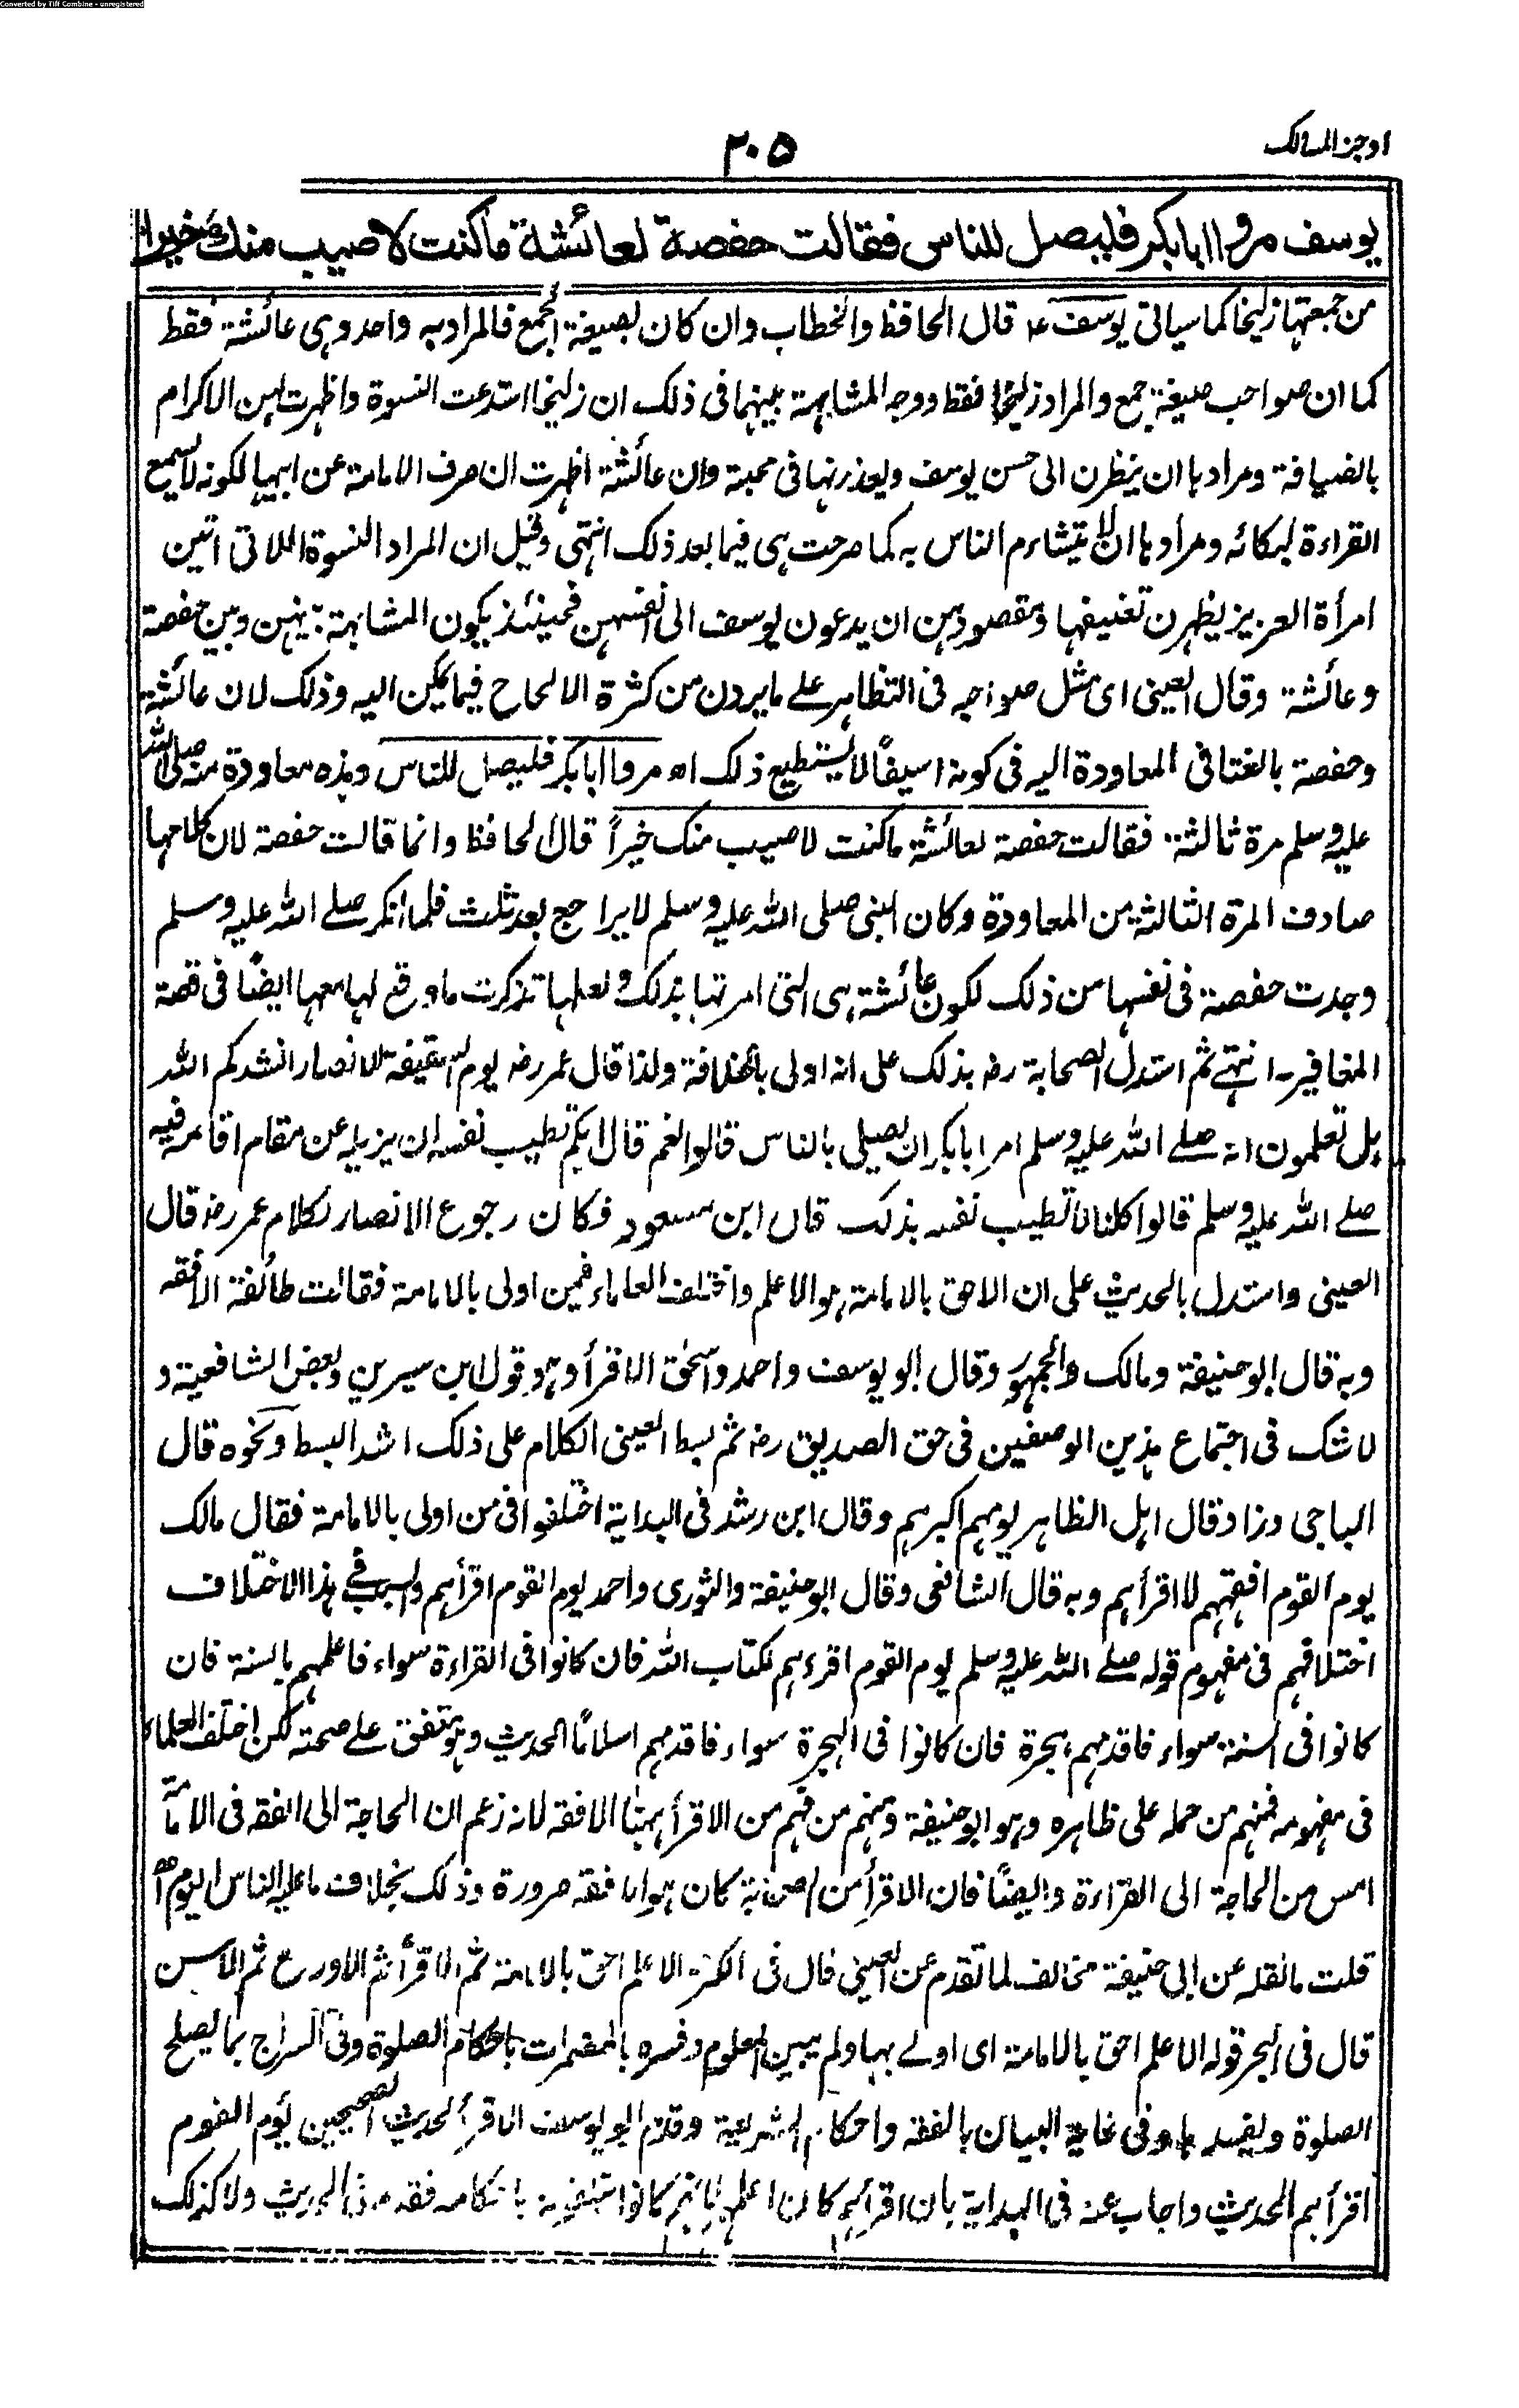 Converted by Tiff Combine - unregistered
اوجز المسالك
٢٠٥
يوسف مروا ابا بكر فليصل للناس فقالت حفصة لعائشة ما كنت لاصيب منك خيرا
من جمعتها زليخا كما سياتى يوسف عـ قال الحافظ والخطاب وان كان بصيغة الجمع فالمراد به واحد وهى عائشة فقط
كما ان صواحب صيغة جمع والمراد زليخا فقط ووجه المشابهة بينهما فى ذلك ان زليخا استدعت النسوة واظهرت لهن الاكرام
بالضيافة ومرادها ان ينظرن الى حسن يوسف ويعذرنها فى محبته وان عائشة اظهرت ان صرف الامامة عن ابيها لكونه لا يسمع
القراءة لبكائه ومرادها ان لا يتشاءم الناس به كما صرحت هى فيما بعد ذلك انتهى وقيل ان المراد النسوة اللاتى اتين
امرأة العزيز يظهرن تعنيفها ومقصودهن ان يدعون يوسف الى انفسهن فحينئذ يكون المشابهة بينهن وبين حفصة
وعائشة وقال العينى اى مثل صواحبه فى التظاهر على ما يردن من كثرة الالحاح فيما يمكن اليه وذلك لان عائشة
وحفصة بالغتا فى المعاودة اليه فى كونه اسيفًا لا يستطيع ذلك اه مروا ابا بكر فليصل للناس وهذه معاودة منه صلى الله
عليه وسلم مرة ثالثة فقالت حفصة لعائشة ما كنت لاصيب منك خيراً قال الحافظ وانما قالت حفصة لان كلامها
صادف المرة الثالثة من المعاودة وكان النبى صلى الله عليه وسلم لا يراجع بعد ثلث فلما انكر صلے الله عليه وسلم
وجدت حفصة فى نفسها من ذلك لكون عائشة هى التى امرتها بذلك ولعلها تذكرت ما وقع لها معها ايضًا فى قصة
المغافير- انتهے ثم استدل الصحابة رضـ بذلك على انه اولى بالخلافة ولذا قال عمر رضـ يوم السقيفة للانصار انشدكم الله
هل تعلمون انه صلے الله عليه وسلم امر ابا بكر ان يصلى بالناس قالوا نعم قال ايكم تطيب نفسه ان يزيله عن مقام اقامه فيه
صلے الله عليه وسلم قالوا كلنا لا تطيب نفسه بذلك قال ابن مسعود فكان رجوع الانصار لكلام عمر رضـ قال
العينى واستدل بالحديث على ان الاحق بالامامة هو الاعلم واختلف العلماء فيمن اولى بالامامة فقالت طائفة الافقه
وبه قال ابو حنيفة ومالك والجمهور وقال ابو يوسف واحمد واسحٰق الاقرأ وهو قول ابن سيرين وبعض الشافعية و
لا شك فى اجتماع هذين الوصفين فى حق الصديق رضـ ثم بسط العينى الكلام على ذلك اشد البسط ونحوه قال
الباجى وزاد وقال اهل الظاهر يؤمهم اكبرهم وقال ابن رشد فى البداية اختلفوا فى من اولى بالامامة فقال مالك
يوم القوم افقههم لا اقرأهم وبه قال الشافعى وقال ابو حنيفة والثورى واحمد يوم القوم اقرأهم والسبب فى هذا الاختلاف
اختلافهم فى مفهوم قوله صلے الله عليه وسلم يوم القوم اقرءهم لكتاب الله فان كانوا فى القراءة سواء فاعلمهم بالسنة فان
كانوا فى السنة سواء فاقدمهم هجرة فان كانوا فى الهجرة سواء فاقدمهم اسلامًا الحديث وهو متفق على صحته لكن اختلف العلماء
فى مفهومه فمنهم من حمله على ظاهره وهو ابو حنيفة ومنهم من فهم من الاقرأ ههنا الافقه لانه زعم ان الحاجة الى الفقه فى الامامة
امس من الحاجة الى القراءة وايضًا فان الاقرأ من الصحابة كان هو الافقه ضرورة وذلك بخلاف ما عليه الناس اليوم اه
قلت ما نقله عن ابى حنيفة مخالف لما تقدم عن العينى قال فى الكنز الاعلم احق بالامامة ثم الاقرأ ثم الاورع ثم الاسن
قال فى البحر قوله الاعلم احق بالامامة اى اولے بها ولم يبين المعلوم وفسره بالمضمرات باحكام الصلوة وفى السراج بما يصلح
الصلوة ويفسدها وفى غاية البيان بالفقه واحكام الشريعة وقدم ابو يوسف الاقرأ لحديث الصحيحين يؤم القوم
اقرأهم الحديث واجاب عنه فى الهداية بان اقرأهم كان اعلمهم لانهم كانوا يتلقونه باحكامه فقدم فى الحديث ولا كذلك